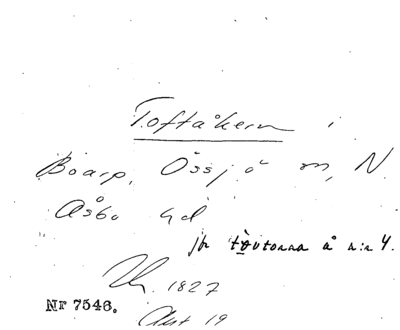 Toftåkern i
Boarp, Össjö sn, N.
Åsbo hd
jfr tòutorna å n:r 4.
1827
Nr 7546.
Akt 19